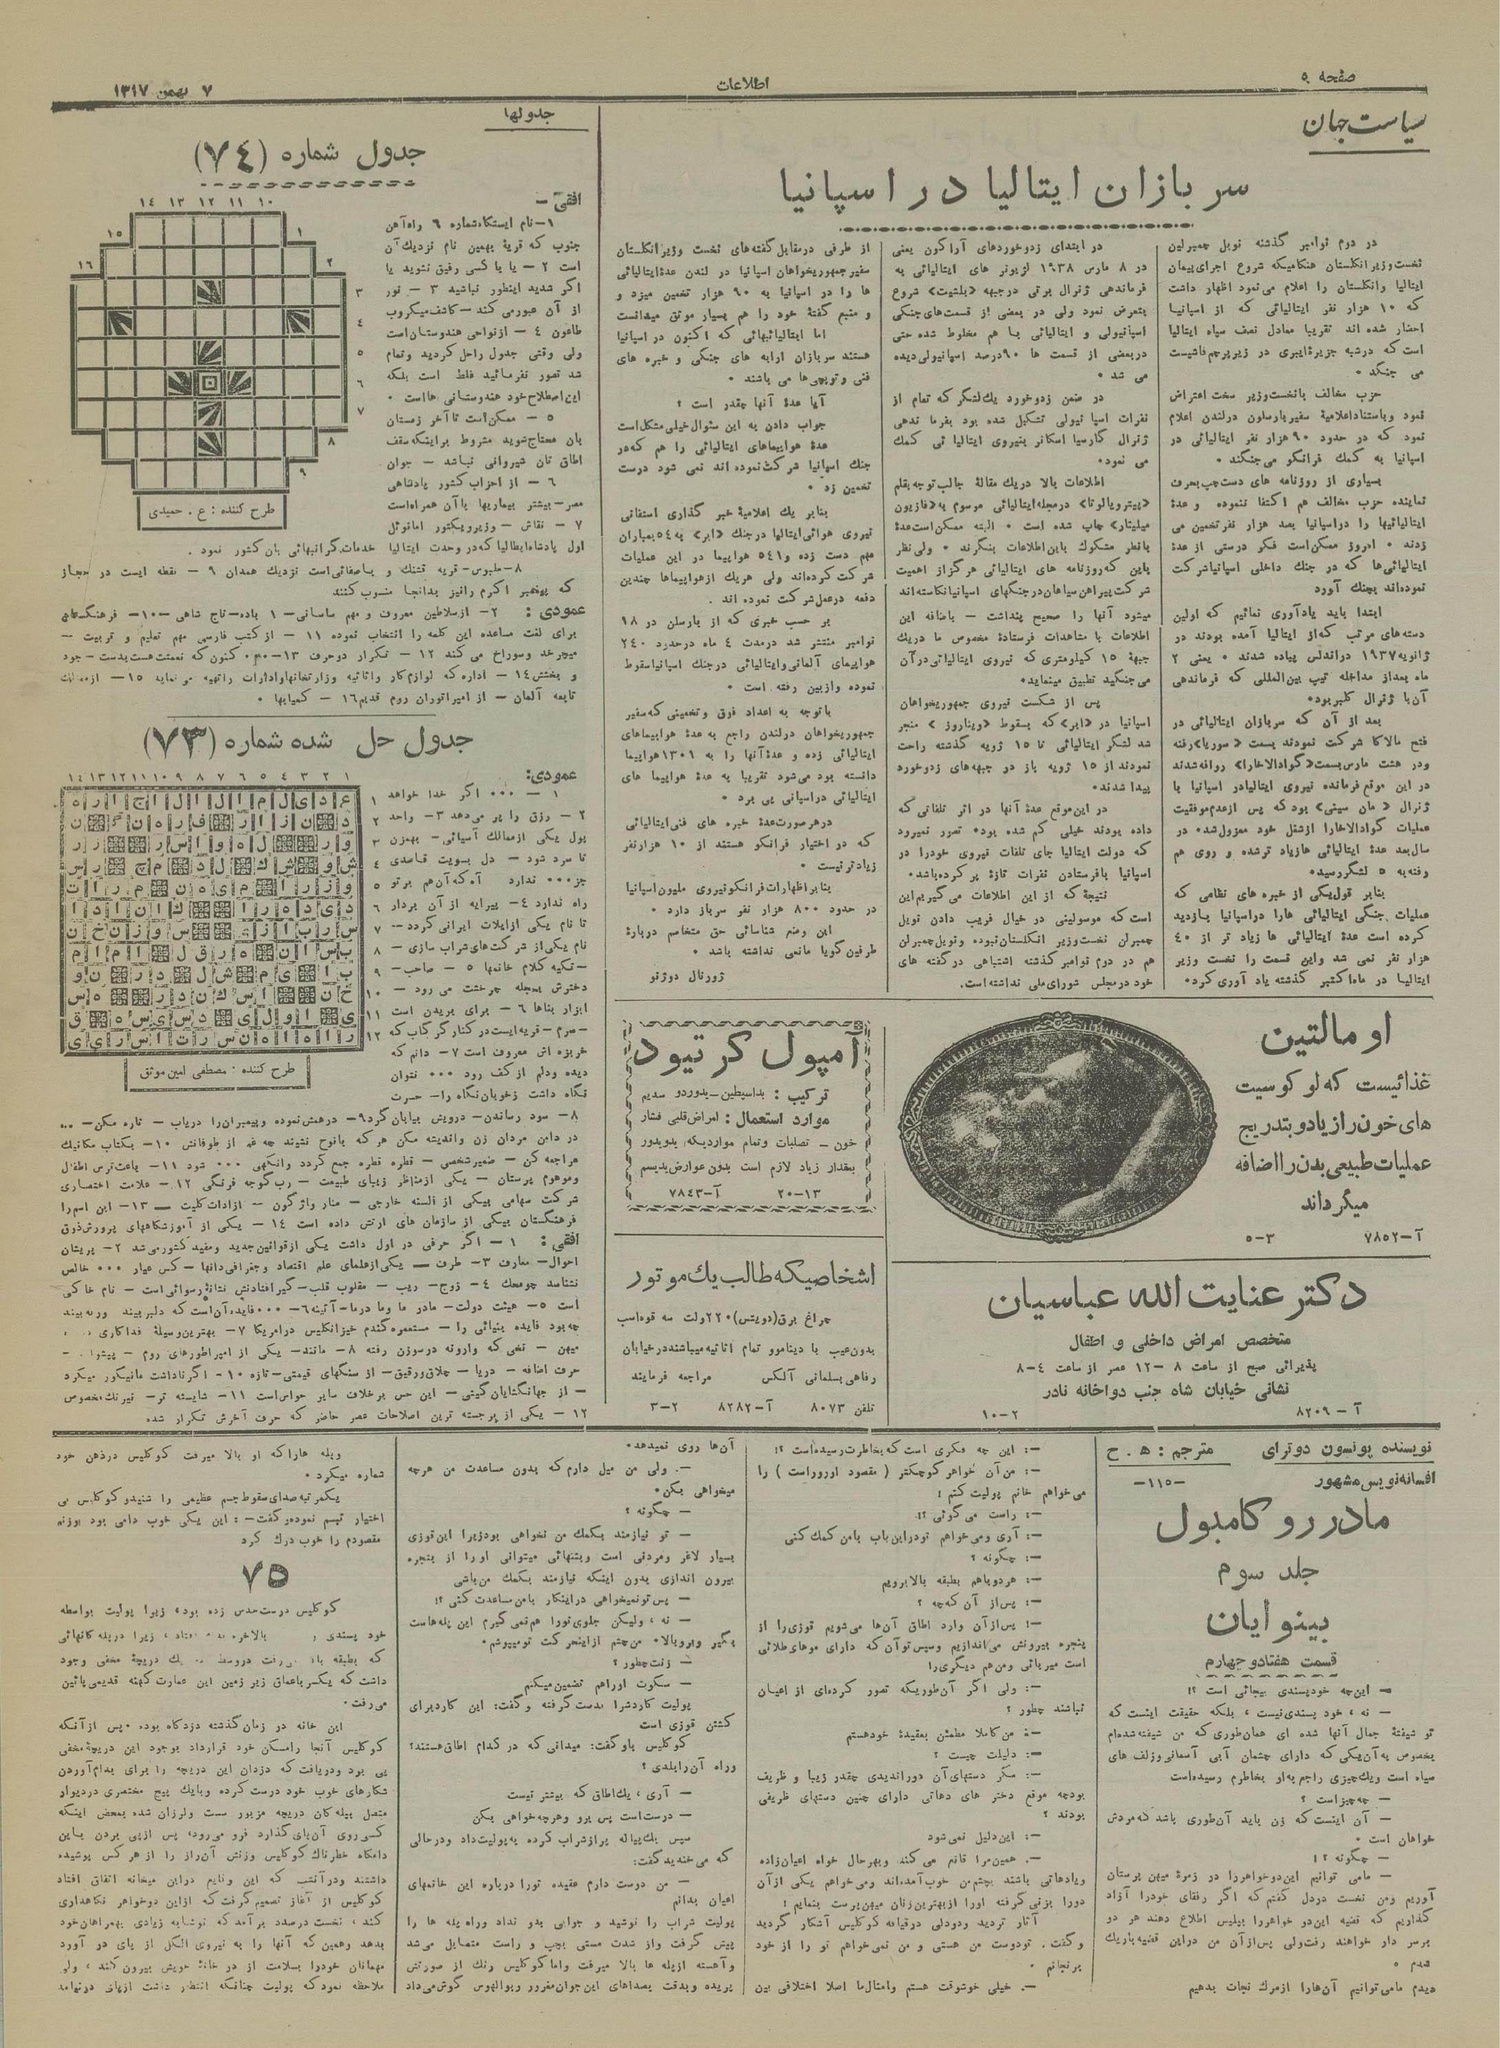 صفحه ۵
اطلاعات
۷ بهمن ۱۳۱۷
سیاست جهان
سربازان ایتالیا در اسپانیا
در دوم نوامبر گذشته نویل چمبرلین
نخست وزیر انگلستان هنگامیکه شروع اجرای پیمان
ایتالیا و انگلستان را اعلام می نمود اظهار داشت
که ۱۰ هزار نفر ایتالیائی که از اسپانیا
احضار شده اند تقریبا معادل نصف سپاه ایتالیا
است که در شبه جزیرهٔ ایبری در زیر پرچم فاشیست
می جنگد •
حزب مخالف با نخست وزیر سخت اعتراض
نمود و باستناد اعلامیهٔ سفیر بارسلون در لندن اعلام
نمود که در حدود ۹۰ هزار نفر ایتالیائی در
اسپانیا به کمک فرانکو می جنگند •
بسیاری از روزنامه های دست چپ بحرف
نماینده حزب مخالف هم اکتفا ننموده و عدهٔ
ایتالیائیها را در اسپانیا بصد هزار نفر تخمین می
زدند • امروز ممکن است فکر درستی از عدهٔ
ایتالیائی ها که در جنک داخلی اسپانیا شرکت
نموده اند بچنک آورد
ابتدا باید یادآوری نمائیم که اولین
دسته های مرتب که از ایتالیا آمده بودند در
ژانویه ۱۹۳۷ در اندلس پیاده شدند • یعنی ۲
ماه بعد از مداخله تیپ بین المللی که فرماندهی
آن با ژنرال کلبر بود •
بعد از آن که سربازان ایتالیائی در
فتح مالاکا شرکت نمودند بسمت «سوریا» رفته
و در هشت مارس بسمت «گوادالاخارا» روانه شدند
در این موقع فرمانده نیروی ایتالیا در اسپانیا با
ژنرال «مان سینی» بود که پس از عدم موفقیت
عملیات گوادالاخارا از شغل خود معزول شد • در
سال بعد عدهٔ ایتالیائی ها زیاد تر شده و روی هم
رفته به ۵ لشگر رسید •
بنابر قول یکی از خبره های نظامی که
عملیات جنگی ایتالیائی ها را در اسپانیا بازدید
کرده است عدهٔ ایتالیائی ها زیاد تر از ۴۰
هزار نفر نمی شد و این قسمت را نخست وزیر
ایتالیا در ماه اکتبر گذشته یاد آوری کرد •
در ابتدای زد و خوردهای آراگون یعنی
در ۸ مارس ۱۹۳۸ لژیونر های ایتالیائی به
فرماندهی ژنرال برتی در جبهه «بلشیت» شروع
بتعرض نمود ولی در بعضی از قسمت های جنگی
اسپانیولی و ایتالیائی با هم مخلوط شده حتی
در بعضی از قسمت ها ۹۰ درصد اسپانیولی دیده
می شد •
در ضمن زد و خورد یک لشگر که تمام از
نفرات اسپا نیولی تشکیل شده بود بفرما ندهی
ژنرال گارسیا اسکانر بنیروی ایتالیا ئی کمک
می نمود •
اطلاعات بالا در یک مقالهٔ جالب توجه بقلم
«پیترو بالوتا» در مجله ایتالیائی موسوم به «فازیون
میلیتار» چاپ شده است • البته ممکن است عدهٔ
بانظر مشکوک باین اطلاعات بنگرند • ولی نظر
باین که روزنامه های ایتالیائی هرگز از اهمیت
شرکت پیراهن سیاهان در جنگهای اسپانیا نکاسته اند
میشود آنها را صحیح پنداشت – باضافه این
اطلاعات با مشاهدات فرستادهٔ مخصوص ما در یک
جبههٔ ۱۵ کیلومتری که نیروی ایتالیائی در آن
می جنگید تطبیق مینماید •
پس از شکست نیروی جمهوریخواهان
اسپانیا در «ابر» که بسقوط «ویناروز» منجر
شد لشگر ایتالیائی تا ۱۵ ژویه گذشته راحت
نمودند از ۱۵ ژویه باز در جبهه های زد و خورد
پیدا شدند •
در این موقع عدهٔ آنها در اثر تلفاتی که
داده بودند خیلی کم شده بود • تصور نمیرود
که دولت ایتالیا جای تلفات نیروی خود را در
اسپانیا با فرستادن نفرات تازهٔ پر کرده باشد •
نتیجهٔ که از این اطلاعات می گیریم این
است که موسولینی در خیال فریب دادن نویل
چمبرلن نخست وزیر انگلستان نبوده و نویل چمبرلن
هم در دوم نوامبر گذشته اشتباهی در گفته های
خود در مجلس شورای ملی نداشته است.
از طرفی در مقابل گفته های نخست وزیر انگلستان
سفیر جمهوریخواهان اسپانیا در لندن عدهٔ ایتالیائی
ها را در اسپانیا به ۹۰ هزار تخمین میزد و
و منبع گفتهٔ خود را هم بسیار موثق میدانست
اما ایتالیائیهائی که اکنون در اسپانیا
هستند سربازان ارابه های جنگی و خبره های
فنی و توپچی ها می باشند •
آیا عدهٔ آنها چقدر است ؟
جواب دادن به این سئوال خیلی مشکل است
عدهٔ هواپیماهای ایتالیائی را هم که در
جنک اسپانیا شرکت نموده اند نمی شود درست
تخمین زد •
بنابر یک اعلامیهٔ خبر گذاری استفانی
نیروی هوائی ایتالیا در جنک «ابر» به ۵۴ بمباران
مهم دست زده و ۵۴۱ هواپیما در این عملیات
شرکت کرده اند ولی هریک از هواپیماها چندین
دفعه در عمل شرکت نموده اند •
بر حسب خبری که از بارسلن در ۱۸
نوامبر منتشر شد در مدت ۴ ماه در حدود ۲۴۰
هواپیمای آلمانی و ایتالیائی در جنک اسپانیا سقوط
نموده و از بین رفته است •
باتوجه به اعداد فوق و تخمینی که سفیر
جمهوریخواهان در لندن راجع به عدهٔ هواپیماهای
ایتالیائی زده و عدهٔ آنها را به ۱۳۰۹ هواپیما
دانسته بود می شود تقریبا به عدهٔ هواپیما های
ایتالیائی در اسپانی پی برد •
در هر صورت عدهٔ خبره های فنی ایتالیائی
که در اختیار فرانکو هستند از ۱۰ هزار نفر
زیاد تر نیست •
بنابر اظهارات فرانکو نیروی ملیون اسپانیا
در حدود ۸۰۰ هزار نفر سرباز دارد •
این وضع شناسائی حق متخاصم دربارهٔ
طرفین گویا مانعی نداشته باشد •
ژورنال دوژنو
او مالتین
غذائیست که لوکوسیت
های خون را زیاد و بتدریج
عملیات طبیعی بدن را اضافه
میگرداند
آ–۷۸۵۲ ۳–۵
دکتر عنایت الله عباسیان
متخصص امراض داخلی و اطفال
پذیرائی صبح از ساعت ۸–۱۲ عصر از ساعت ۴–۸
نشانی خیابان شاه جنب دواخانه نادر
آ– ۸۲۰۹ ۲–۱۰
آمپول کرتیود
ترکیب : بداسیطین–یدوردو سدیم
موارد استعمال : امراض قلبی فشار
خون – تصلبات و تمام مواردیکه یدویدور
بمقدار زیاد لازم است بدون عوارض یدیسم
۱۳–۲۰ آ–۷۸۴۳
اشخاصیکه طالب یک موتور
چراغ برق (دویتس) ۲۲۰ ولت سه قوه اسب
بدون عیب با دینامو و تمام اثاثیه میباشند در خیابان
رفاهی بسلمانی آلکس مراجعه فرمایند
تلفن ۸۰۷۳ آ–۸۲۸۲ ۲–۳
جدولها
جدول شماره (۷۴)
افقی –
۱–نام ایستگاه شماره ۶ راه آهن
جنوب که قریهٔ بهمین نام نزدیک آن
است ۲ – یا با کسی رفیق نشوید یا
اگر شدید اینطور نباشید ۳ – نور
از آن عبور می کند – کاشف میکروب
طاعون ۴ – از نواحی هندوستان است
ولی وقتی جدول را حل کردید و تمام
شد تصور نفرمائید غلط است بلکه
این اصطلاح خود هندوستانی ها است •
۵ – ممکن است تا آخر زمستان
بآن محتاج شوید مشروط بر اینکه سقف
اطاق تان شیروانی نباشد – جوان
۶ – از احزاب کشور پادشاهی
مصر– بیشتر بیماریها با آن همراه است
۷ – نقاش – وزیر ویکتور امانوئل
اول پادشاه ایطالیا که در وحدت ایتالیا خدمات گرانبهائی بآن کشور نمود .
۸–ملبوس–قریه قشنک و باصفائی است نزدیک همدان ۹ – نقطه ایست در حجاز
که پیغمبر اکرم رانیز بدانجا منسوب کنند
عمودی : ۲– از سلاطین معروف و مهم ساسانی– ۱ باده–تاج شاهی –۱۰– فرهنگستان
برای لغت مساعده این کلمه را انتخاب نموده ۱۱ – از کتب فارسی مهم تعلیم و تربیت –
میچرخد و سوراخ می کند ۱۲ – تکرار دو حرف ۱۳–۰۰۰ کنون که نعمتت هست بدست–جود
و بخشش ۱۴ – اداره که لوازم کار و اثاثیه وزارتخانها و ادارات را تهیه می نماید ۱۵–
تابعه آلمان – از امپراتوران روم قدیم ۱۶ – کمیابها •
۱ ۲ ۳ ۴ ۵ ۶ ۷ ۸ ۹ ۱۰ ۱۱ ۱۲ ۱۳ ۱۴ ۱۵ ۱۶
طرح کننده : ع . حمیدی
جدول حل شده شماره (۷۳)
۱ ۲ ۳ ۴ ۵ ۶ ۷ ۸ ۹ ۱۰ ۱۱ ۱۲ ۱۳ ۱۴
طرح کننده • مصطفی امین موثق
عمودی:
۱ – ۰۰۰ اگر خدا خواهد
۲ – رزق را پر می دهد ۳– واحد
پول یکی از ممالک آسیائی – بهوزن
تا سرد شود – دل بسویت قاصدی
جز ۰۰۰ ندارد آه که آن هم بر تو
راه ندارد ۴– پیرایه از آن بردار
تا نام یکی از ایلات ایرانی گردد –
نام یکی از شرکت های شراب سازی –
–تکیه کلام خانمها ۵ – صاحب–
دخترش بعجله چرخشت می رود –
ابزار بناها ۶ – برای بریدن است
–صرم–قریه ایست در کنار گرگاب که
خربوزه اش معروف است ۷– دانم که
دیده و دلم از کف رود ۰۰۰ نتوان
نگاه داشت ز خوبان نگاه را– حسرت
۸– سود رساندن– درویش بیابان گرد ۹– در همش نموده و پیمبران را دریاب –
در دامن مردان زن و اندیشه مکن هر که بانوح نشیند چه غم از طوفانش ۱۰–
مراجعه کن – ضمیر شخصی – قطره قطره جمع گردد وانگهی ۰۰۰ شود ۱۱– باعث ترس اطفال
وموهوم پرستان – یکی از مناظر زیبای طبیعت – رب گوجه فرنگی ۱۲– علامت اختصاری
شرکت سهامی بیکی از السنه خارجی – منار واژگون – از ادات کلیت – ۱۳– این اسم را
فرهنگستان بیکی از سازمان های ارتش داده است ۱۴ – یکی از آموزشگاههای پرورش ذوق
افقی : ۱ – اگر حرفی در اول داشت یکی از قوانین جدید و مفید کشور می شد ۲– پریشان
احوال– معارف ۳– طرف – یکی از علمای علم اقتصاد و جغرافی دانها – کس عیار ۰۰۰ خالص
نشناسد چو محک ۴– زوج– ریب – مقلوب قلب– گیر افتادنش نشانهٔ رسوائی است – نام خاکی
است ۵– هیئت دولت– مادر ما و ما در ما– آئینه ۶–۰۰۰ فایده آن است که دلبر بیند ور نه بیند
چه بود فایده بنیائی را – مستعمره گندم خیز انگلیس در امریکا ۷– بهترین وسیلهٔ فداکاری
میهن – نخی که وارونه در سوزن رفته ۸– مانند– یکی از امپراطورهای روم –
حرف اضافه – دریا – چلاق و رقیق– از سنگهای قیمتی– تازه ۱۰– اگر نداشت مانیکور میکرد
– از جهانگشایان گیتی – این حس بر خلاف سایر حواس است ۱۱– شایسته تر– نیرنک مخصوص
۱۲ – یکی از برجسته ترین اصلاحات عصر حاضر که حرف آخرش تکرار شده
نویسنده پونسون دوترای مترجم : ه . ح
افسانه نویس مشهور –۱۱۵–
مادر روکامبول
جلد سوم
بینوایان
قسمت هفتاد و چهارم
– این چه خودپسندی بیجائی است ؟!
– نه ، خود پسندی نیست ، بلکه حقیقت اینست که
تو شیفتهٔ جمال آنها شده ای همان طوری که من شیفته شده ام
بخصوص به آن یکی که دارای چشمان آبی آسمانی و زلف های
سیاه است و یک چیزی راجع به او بخاطرم رسیده است
– چه چیز است ؟
– آن اینست که زن باید آن طوری باشد که مردش
خواهان است •
– چگونه ؟ !
– مامی توانیم این دو خواهر را در زمرهٔ میهن پرستان
آوریم ومن نخست در دل گفتم که اگر رفقای خود را آزاد
گذاریم که قضیه این دو خواهر را بپلیس اطلاع دهند هر دو
بر سر دار خواهند رفت ولی پس از آن من در این قضیه باریک
شدم •
دیدم مامی توانیم آن ها را از مرک نجات بدهیم
–: این چه فکری است که بخاطرت رسیده است ؟!
–: من آن خواهر کوچکتر ( مقصود اوروراست ) را
می خواهم خانم پولیت کنم !
–: راست می گوئی ؟!
–: آری و می خواهم تو در این باب بامن کمک کنی
–: چگونه ؟
–: هر دو باهم بطبقه بالا برویم
–: پس از آن که چه ؟
–! پس از آن وارد اطاق آن ها می شویم توزی را از
پنجره بیرونش می اندازیم و سپس تو آن که دارای موهای طلائی
است میربائی ومن هم دیگری را !
–: ولی اگر آن طوریکه تصور کرده ای از اعیان
نباشند چطور ؟
–: من کاملا مطمئن بعقیدهٔ خود هستم
–: دلیلت چیست ؟
–: مگر دستهای آن دو را ندیدی چقدر زیبا و ظریف
بود چه موقع دختر های دهاتی دارای چنین دستهای ظریفی
بودند ؟
–: این دلیل نمی شود
–. همین مرا قانع می کند و بهر حال خواه اعیان زاده
ویادهاتی باشند بچشم من خوب آمده اند و می خواهم یکی از آن
دو را بزنی گرفته او را از بهترین زنان میهن پرست بنمایم !
آثار تردید و دودلی در قیافه کوکلیس آشکار گردید
وگفت . تو دوست من هستی و من نمی خواهم تو را از خود
برنجانم •
–. خیلی خوشوقت هستم و امثال ما اصلا اختلافی بین
آن ها روی نمیدهد •
–. ولی من میل دارم که بدون مساعدت من هر چه
میخواهی بکن •
– چگونه ؟
– تو نیازمند بکمک من نخواهی بود زیرا این توزی
بسیار لاغر و مردنی است و بتنهائی میتوانی او را از پنجره
بیرون اندازی بدون اینکه نیازمند بکمک من باشی
– پس تو نمیخواهی در اینکار بامن مساعدت کنی ؟!
– نه ، ولیکن جلوی تو را هم نمی گیرم این پله هاست
بگیر و برو بالا • من چشم از اینحر کت تو میپوشم •
– زنت چطور ؟
– سکوت او را هم تضمین میکنم
پولیت کارد شرا بدست گرفته و گفت: این کارد برای
کشتن توزی است
کوکلیس باو گفت: میدانی که در کدام اطاق هستند؟
وراه آن را بلدی ؟
– آری ، یک اطاق که بیشتر نیست
– درست است پس برو و هر چه خواهی بکن
سپس یک پیاله پر از شراب کرده به پولیت داد و در حالی
که می خندید گفت:
– من دوست دارم عقیده تو را درباره این خانمهای
اعیان بدانم
پولیت شراب را نوشید و جوابی بدو نداد و راه پله ها را
پیش گرفت و از شدت مستی بچپ و راست متمایل می شد
و آهسته از پله ها بالا میرفت و اما کوکلیس رنک از صورتش
پریده و بدقت بصداهای این جوان مغرور و بوالهوس گوش می داد
وپله هارا که او بالا میرفت کوکلیس در ذهن خود
شماره میکرد •
یکمر تبه صدای سقوط جسم عظیمی را شنید و کوکلیس بی
اختیار تبسم نموده و گفت–: این یکی خوب دامی بود بوزینه
مقصودم را خوب درک کرد
۷۵
کوکلیس درست حدس زده بود ، زیرا پولیت بواسطه
خود پسندی و بالاخره ، زیرا در پله کانهائی
که بطبقه میرفت در وسط یک دریچهٔ مخفی وجود
داشت که یکسر باعماق زیر زمین این عمارت کهنه قدیمی پائین
می رفت •
این خانه در زمان گذشته دزدگاه بوده •پس از آنکه
کوکلیس آنجا را مسکن خود قرارداد بوجود این دریچه مخفی
پی برد و دریافت که دزدان این دریچه را برای بدام آوردن
شکارهای خوب خود درست کرده و بایک پیچ مختصری در دیوار
متصل بپله کان دریچه مزبور سست و لرزان شده بمحض اینکه
کسی روی آن پای گذارد فرو می رود، پس از پی بردن باین
دامگاه خطرناک کوکلیس و زنش آن راز را از هر کس پوشیده
داشتند و در آن شب که این وقایع در این میخانه اتفاق افتاد
کوکلیس از آغاز تصمیم گرفت که از این دو خواهر نگاهداری
کند ، نخست در صدد برآمد که نوشابه زیادی بهمراهان خود
بدهد و همین که آنها را به نیروی الکل از پای در آورد
مهمانان خود را بسلامت از در خانهٔ خویش بیرون کند ، ولی
ملاحظه نمود که پولیت چنانکه انتظار داشت از پای در نیامد